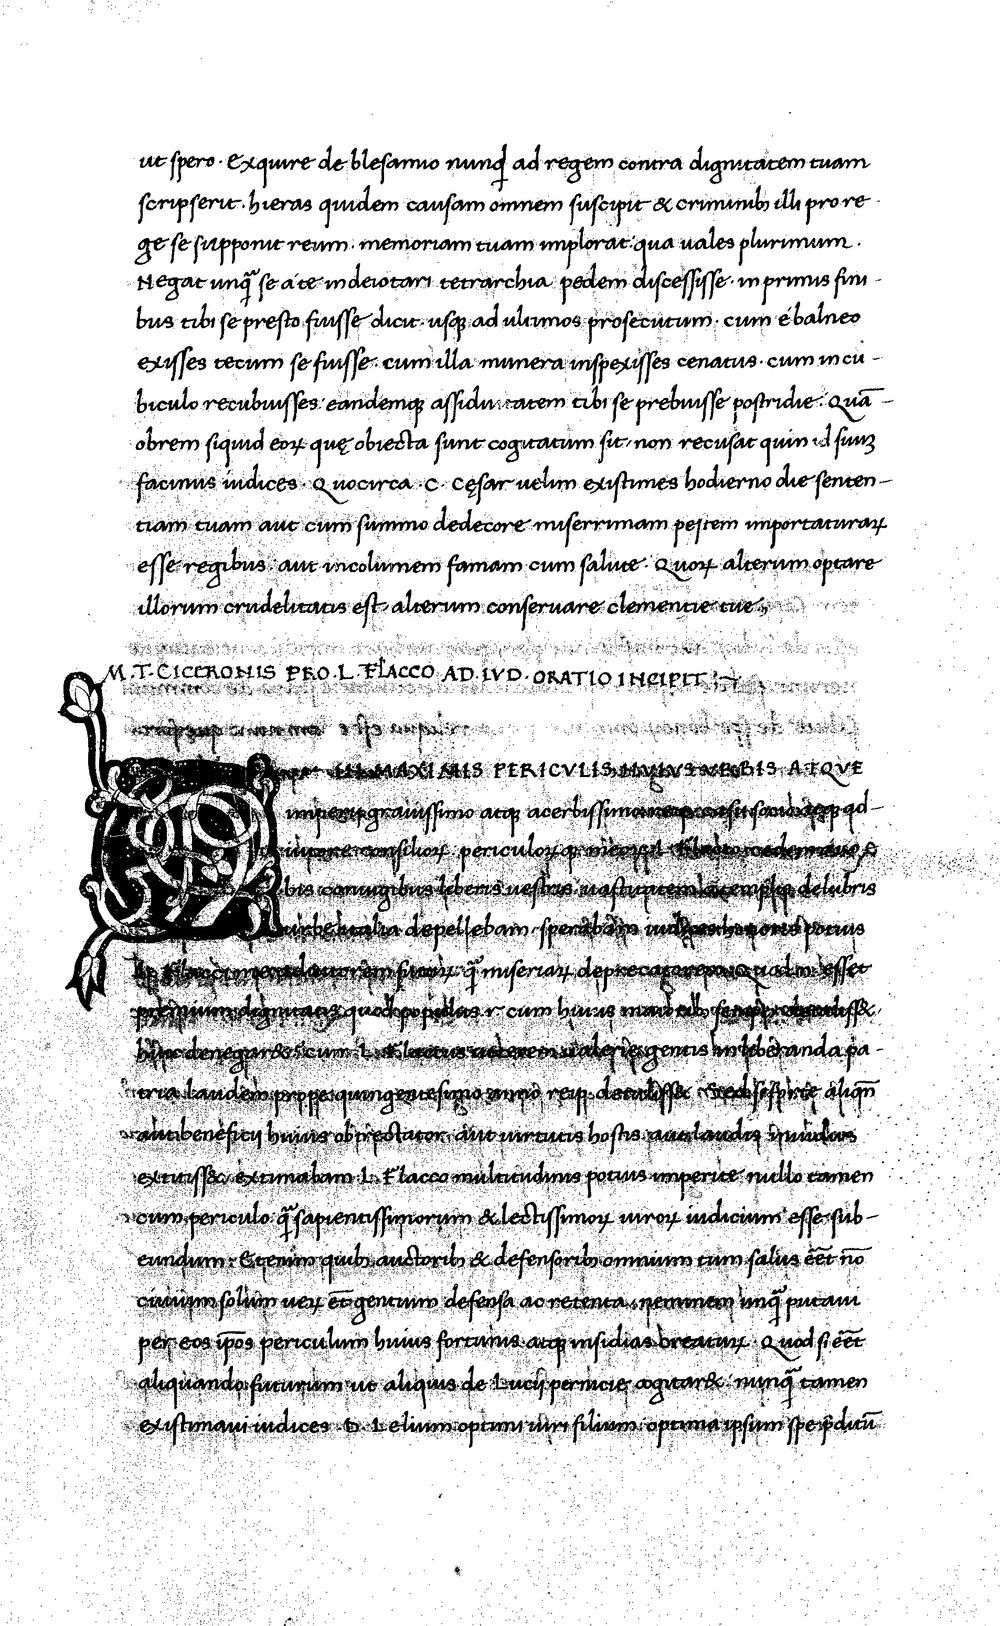 ut spero · Exquire de blesamio nunqḍ ad regem contra dignitatem tuam
scripserit · hieras quidem causam omnem suscipit & criminibꝫ illi pro re
ge se supponit reum · memoriam tuam implorat qua vales plurimum ·
Negat unq̃ se a te in deiotari tetrarchia pedem discessisse · in primis fini-
bus tibi se presto fuisse dicit · usqꝫ ad ultimos prosecutum · cum é balneo
exisses tecum se fuisse · cum illa munera inspexisses cenatus · cum in cu-
biculo recubuisses eandemqꝫ assiduitatem tibi se prebuisse postridie · Quā-
obrem siquid eoꝝ quę obiecta sunt cogitatum sit · non recusat quin id suuꝫ
facinus iudices · Quocirca · C · Cęsar velim existimes hodierno die senten-
tiam tuam aut cum summo dedecore miserrimam pestem importaturaꝝ
esse regibus · aut incolumem famam cum salute · Quoꝝ alterum optare
illorum crudelitatis est · alterum conservare clementie tue ·
M · T · CICERONIS PRO · L · FLACCO AD · IVD · ORATIO INCIPIT
IN MAXIMIS PERICVLIS HVIVS VRBIS ATQVE
imperii gravissimo atqꝫ acerbissimo ad-
consilioꝝ periculoꝝqꝫ
bis coniugibus liberis vestris vastitatem a templis delubris
urbe italia depellebam · sperabam iudices honoris potius
L · Flacci me adiutorem q̃ miseriaꝝ deprecatorem · Quod n · esset
premium dignitatis quod populus r̄ cum huius maioribꝫ semper detuliss&
huic denegar& · cum L · Flaccus veterem valerię gentis in liberanda pa-
tria laudem prope quingentesimo anno reip · detuliss& · Sed si forte aliqñ
aut beneficij huius obtrectator · aut virtutis hostis aut laudis invidus
extitiss& · extimabam · L · Flacco multitudinis potius imperite · nullo tamen
cum periculo · q̃ sapientissimorum & lectissimoꝝ viroꝝ iudicium esse sub-
eundum · Etenim quibꝫ auctoribꝫ & defensoribꝫ omnium tum salus eēt nō
civium solum veꝝ et̄ gentium defensa ac retenta · neminem unq̃ putavi
per eos ip̄os periculum huius fortunis atqꝫ insidias creaturꝝ · Quod si eēt
aliquando futurum ut aliquis de Lucij pernicie cogitar& · nunq̃ tamen
existimavi iudices · D · Lelium optimi viri filium · optima ipsum spe p̄ditū